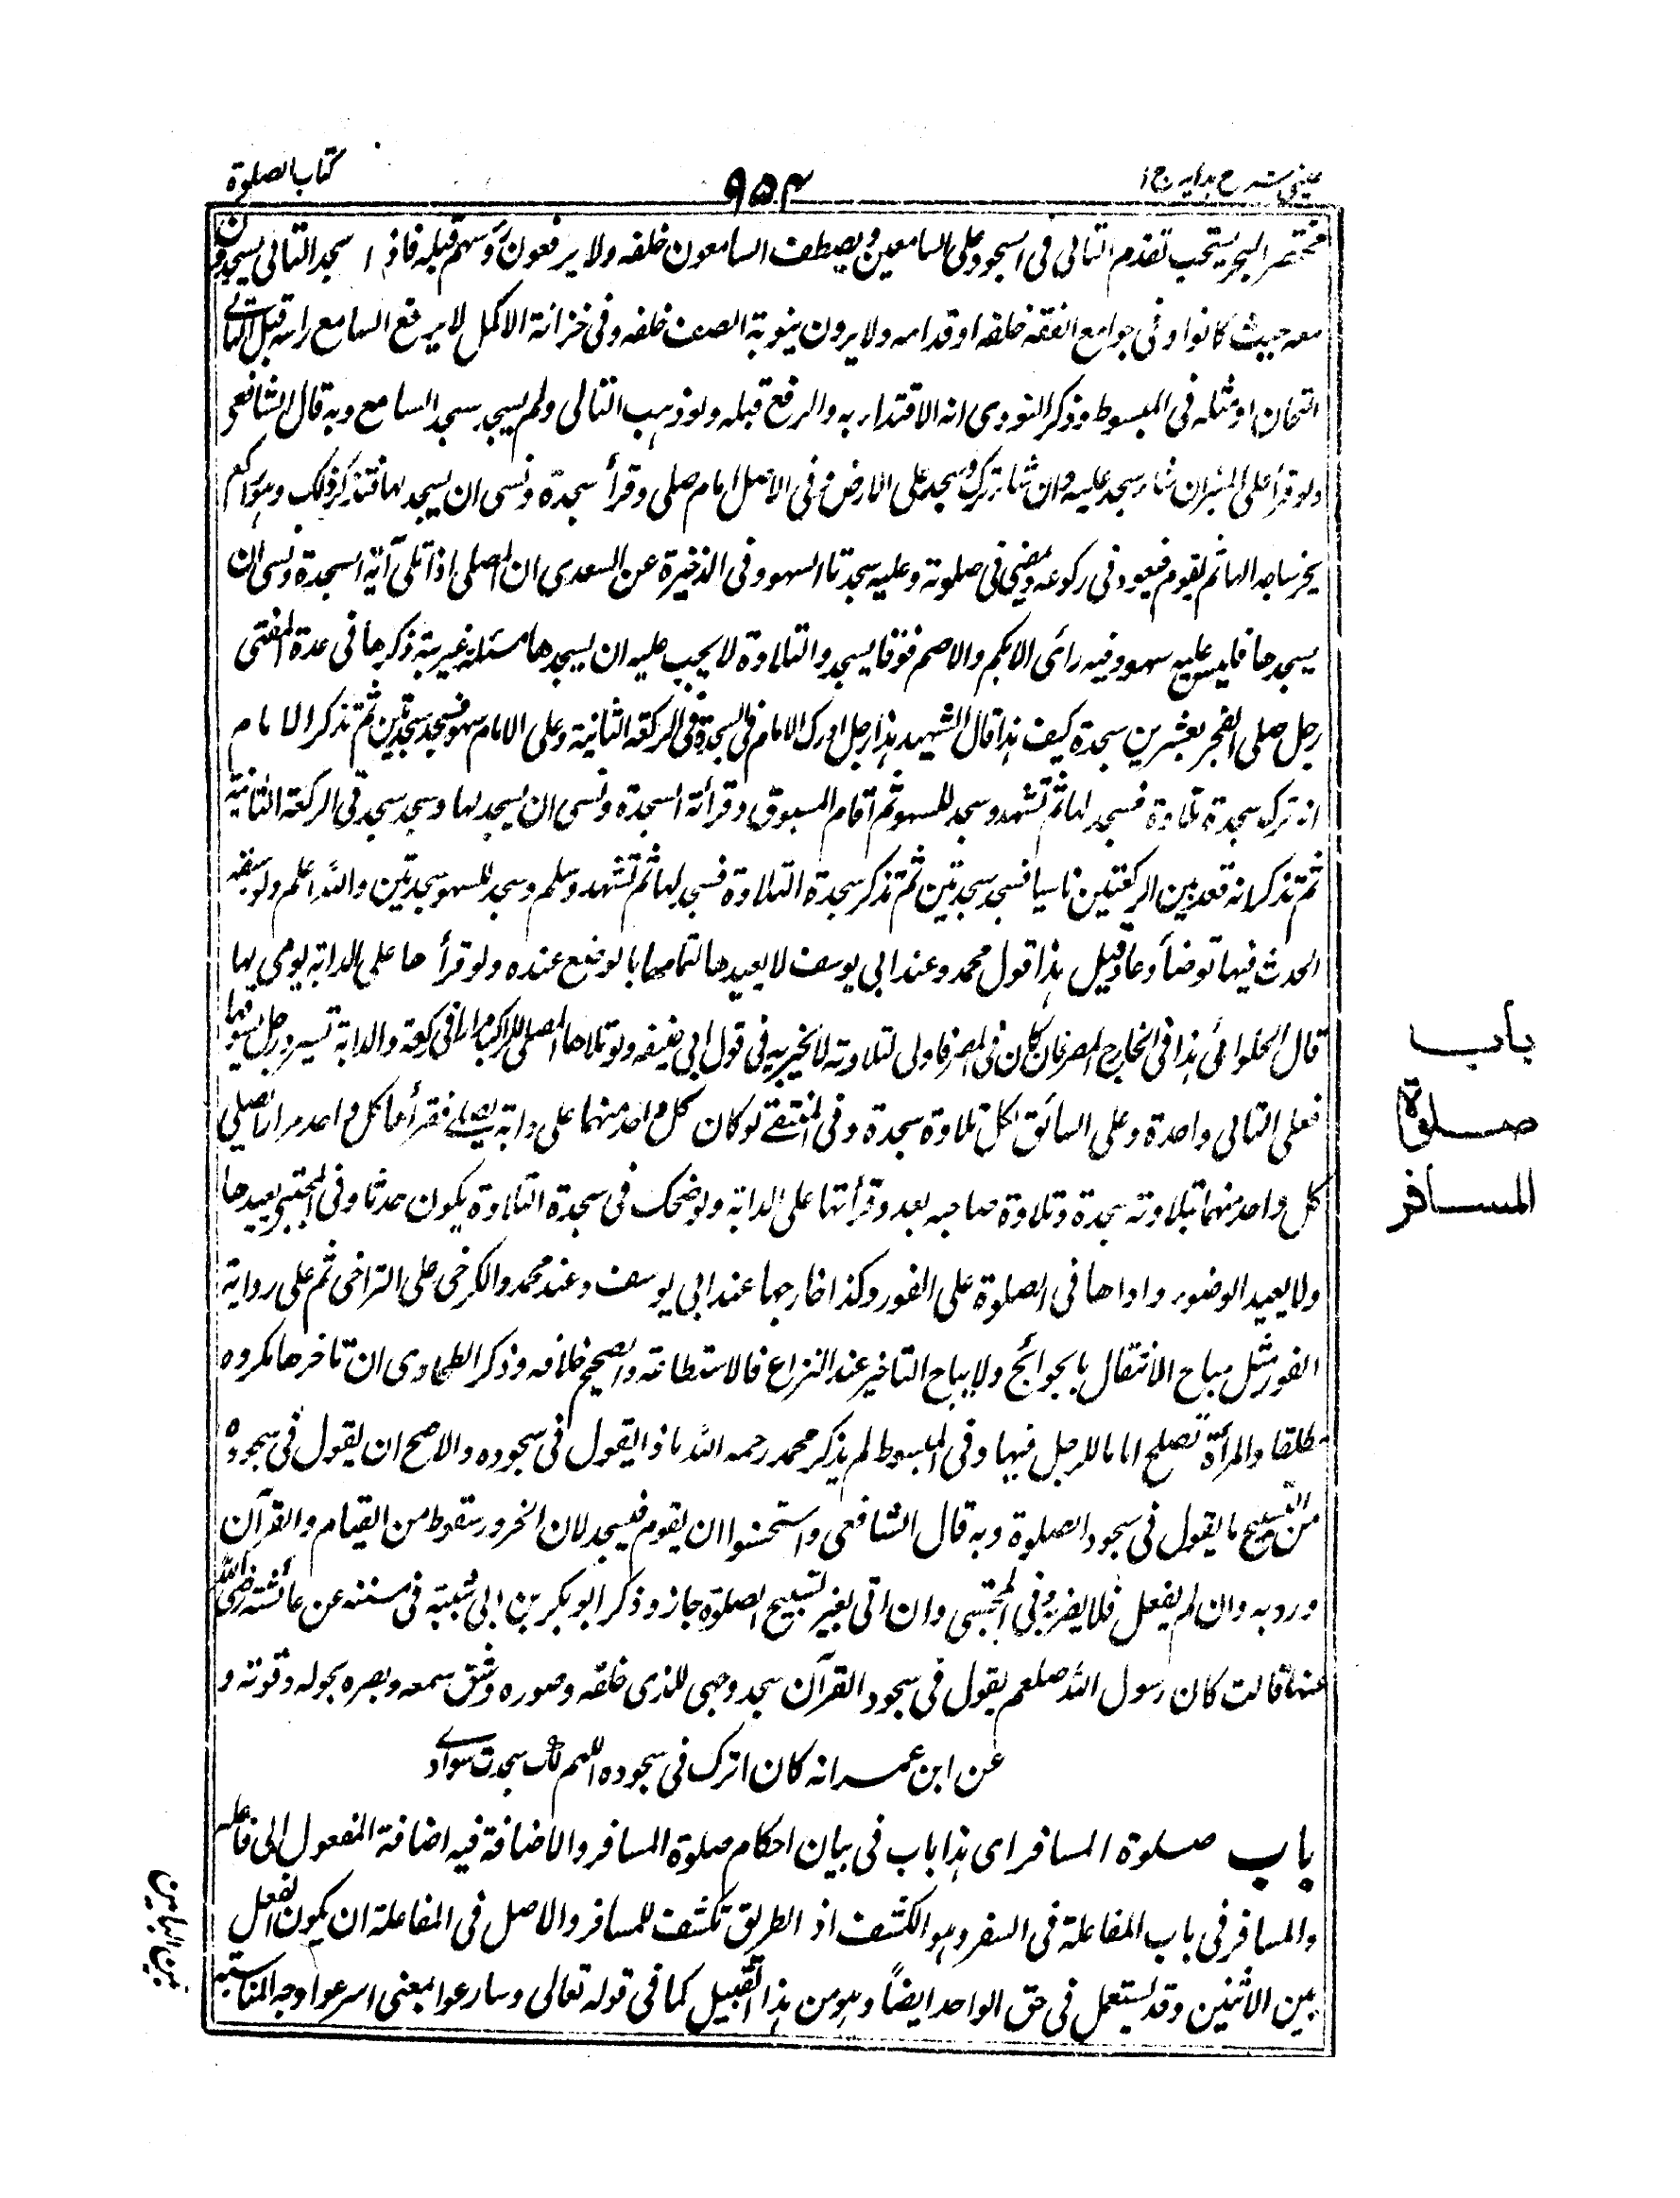 عینی شرح ہدایہ ج ۱
۹۵۴
کتاب الصلوة
مختصر البحر يستحب تقدم التالى فى السجود على السامعين ويصطف السامعون خلفه ولا يرفعون رؤسهم قبله فاذا سجد التالى يسجدون
معه حيث كانوا وفى جوامع الفقه خلفه او قدامه ولا يرون ينوبة الصف خلفه وفى خزانة الاكمل لا يرفع السامع راسه قبل التالى
استحسانا ومثله فى المبسوط وذكر النووى انه الاقتداء به والرفع قبله ولو ذهب التالى ولم يسجد سجد السامع وبه قال الشافعى
ولو قرأ على المنبر ان شاء سجد عليه وان شاء ترك وسجد على الارض وفى الاصل امام صلى وقرأ سجدة ونسى ان يسجد لها فتذكر ذلك وهو راكع
يخر ساجدا لها ثم يقوم فيعود فى ركوعه ويمضى فى صلوته وعليه سجدتا السهو وفى الذخيرة عن السعدى ان المصلى اذا تلى آية السجدة ونسى ان
يسجدها فليس عليه سهو وفيه رأى الابكم والاصم قوما يسجد والتلاوة لا يجب عليه ان يسجدها مسئلة غريبة ذكرها فى عدة المفتى
رجل صلى الفجر بعشرين سجدة كيف هذا قال الشهيد هذا رجل ادرك الامام فى السجدة فى الركعة الثانية وعلى الامام سهو فسجد سجدتين ثم تذكر الامام
انه ترك سجدة تلاوة فسجد لها ثم تشهد وسجد للسهو ثم اقام المسبوق وقرأ آية السجدة ونسى ان يسجد لها وسجد سجد فى الركعة الثانية
ثم تذكر انه قعد بين الركعتين ناسيا فسجد سجدتين ثم تذكر سجدة التلاوة فسجد لها ثم تشهد وسلم وسجد للسهو سجدتين والله اعلم ولو سبقه
الحدث فيها توضأ وعاد قيل هذا قول محمد وعند ابى يوسف لا يعيدها لتمامها بالوضع عنده ولو قرأها على الدابة يومى بها
قال الحلوائى هذا فى الخارج المصر فان كان فى المصر فاومى لتلاوته لا يجزيه فى قول ابى حنيفه ولو تلاها المصلى الراكب مرارا فى ركعة والدابة تسير ورجل يسوقها
فعلى التالى واحدة وعلى السائق لكل تلاوة سجدة وفى المنتقى لو كان كل واحد منهما على دابة يصلى فقرأها كل واحد مرارا يصلى
كل واحد منهما بتلاوته سجدة وتلاوة صاحبه بعد وقرأتها على الدابة ولو ضحك فى سجدة التلاوة يكون حدثا وفى المجتبى يعيدها
ولا يعيد الوضوء واداها فى الصلوة على الفور وكذا خارجها عند ابى يوسف وعند محمد والكرخى على التراخى ثم على رواية
الفور مثل مباح الانتقال بالحوائج ولا يباح التاخير عند النزاع فالاستطاعة والصحيح خلافه وذكر الطحاوى ان تاخرها مكروه
مطلقا والمرأة تصلح اماما للرجل فيها وفى المبسوط لم يذكر محمد رحمه الله ماذا يقول فى سجوده والاصح ان يقول فى سجوده
من التسبيح ما يقول فى سجود الصلوة وبه قال الشافعى واستحسنوا ان يقوم فيسجد لان الخرور سقوط من القيام والقرآن
ورد به وان لم يفعل فلا يضره وفى المجتبى وان اتى بغير تسبيح الصلوة جاز وذكر ابو بكر بن ابى شيبة فى مسنده عن عائشة رضى الله
عنها قالت كان رسول الله صلعم يقول فى سجود القرآن سجد وجهى للذى خلقه وصوره وشق سمعه وبصره بحوله وقوته و
عن ابن عمر انه كان اترك فى سجوده اللهم لك سجدت سوادى
باب صلوة المسافر اى هذا باب فى بيان احكام صلوة المسافر والاضافة فيه اضافة المفعول الى فاعله
والمسافر فى باب المفاعلة فى السفر وهو الكشف اذ الطريق تكشف للمسافر والاصل فى المفاعلة ان يكون الفعل
بين الاثنين وقد يستعمل فى حق الواحد ايضاً وهو من هذا القبيل كما فى قوله تعالى وسارعوا بمعنى اسرعوا وجه المناسبة
باب
صلوة
المسافر
بين البابين